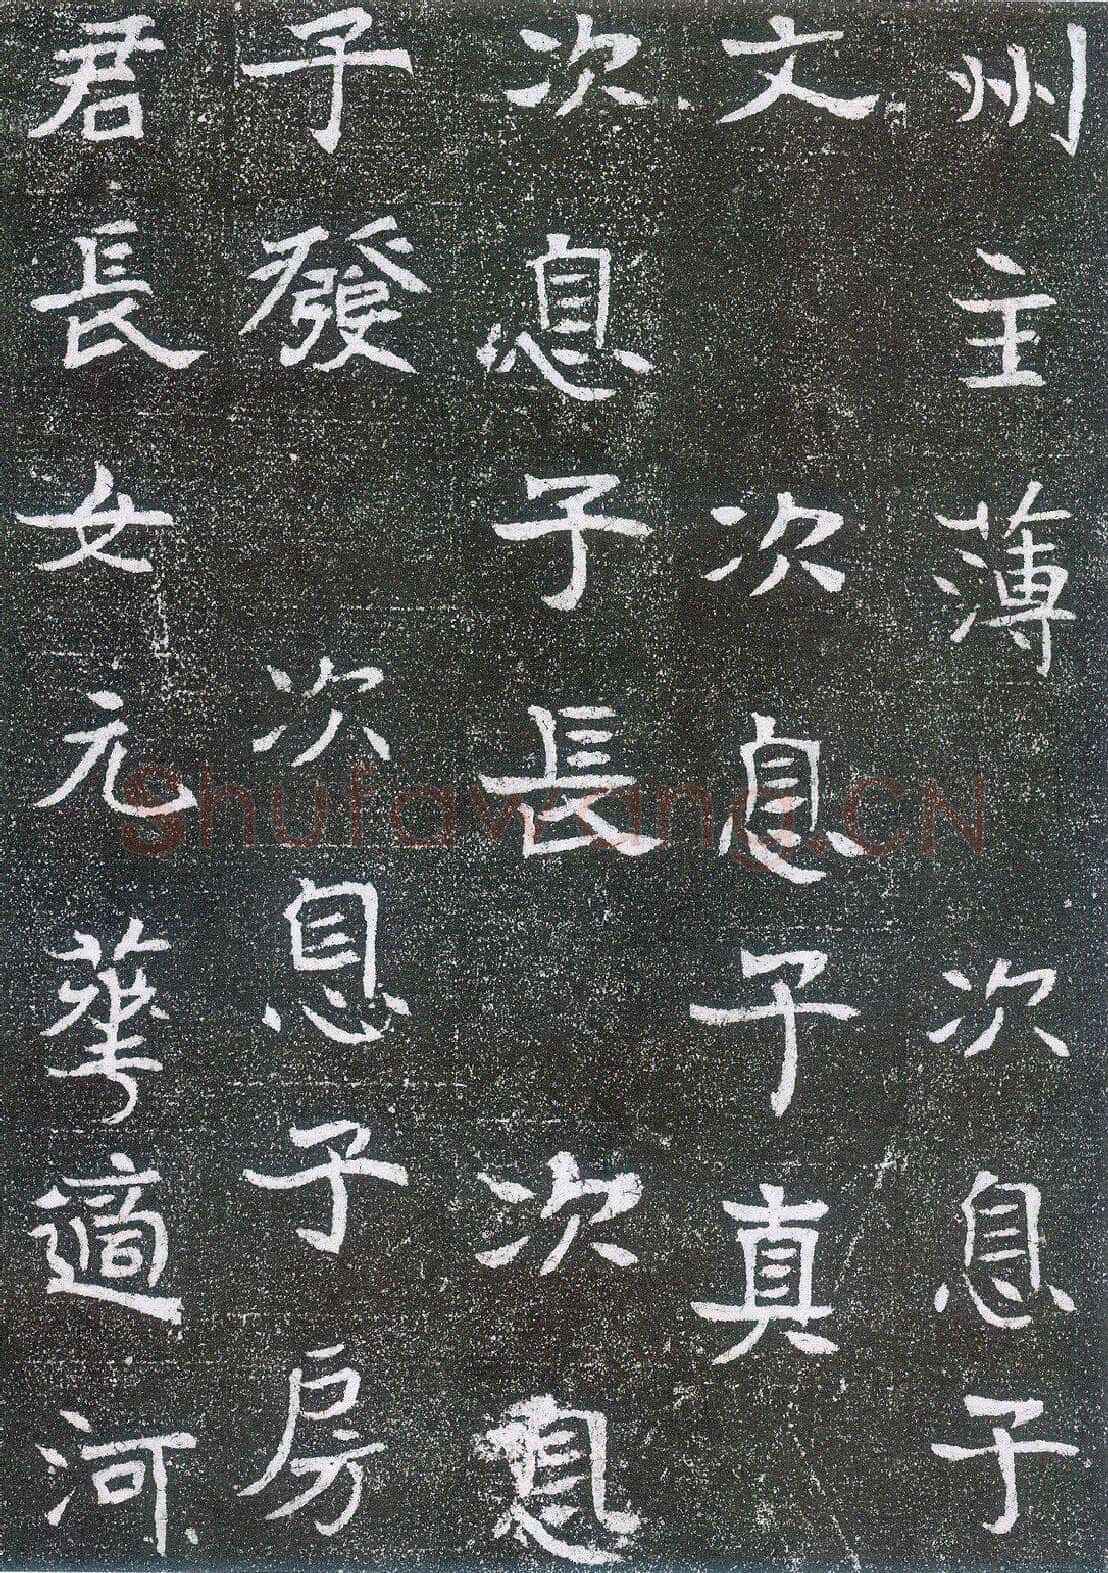 州主薄次息子
文次息子真
次息子長次息
子發次息子房
君長女元華適河
Shufawang.CN